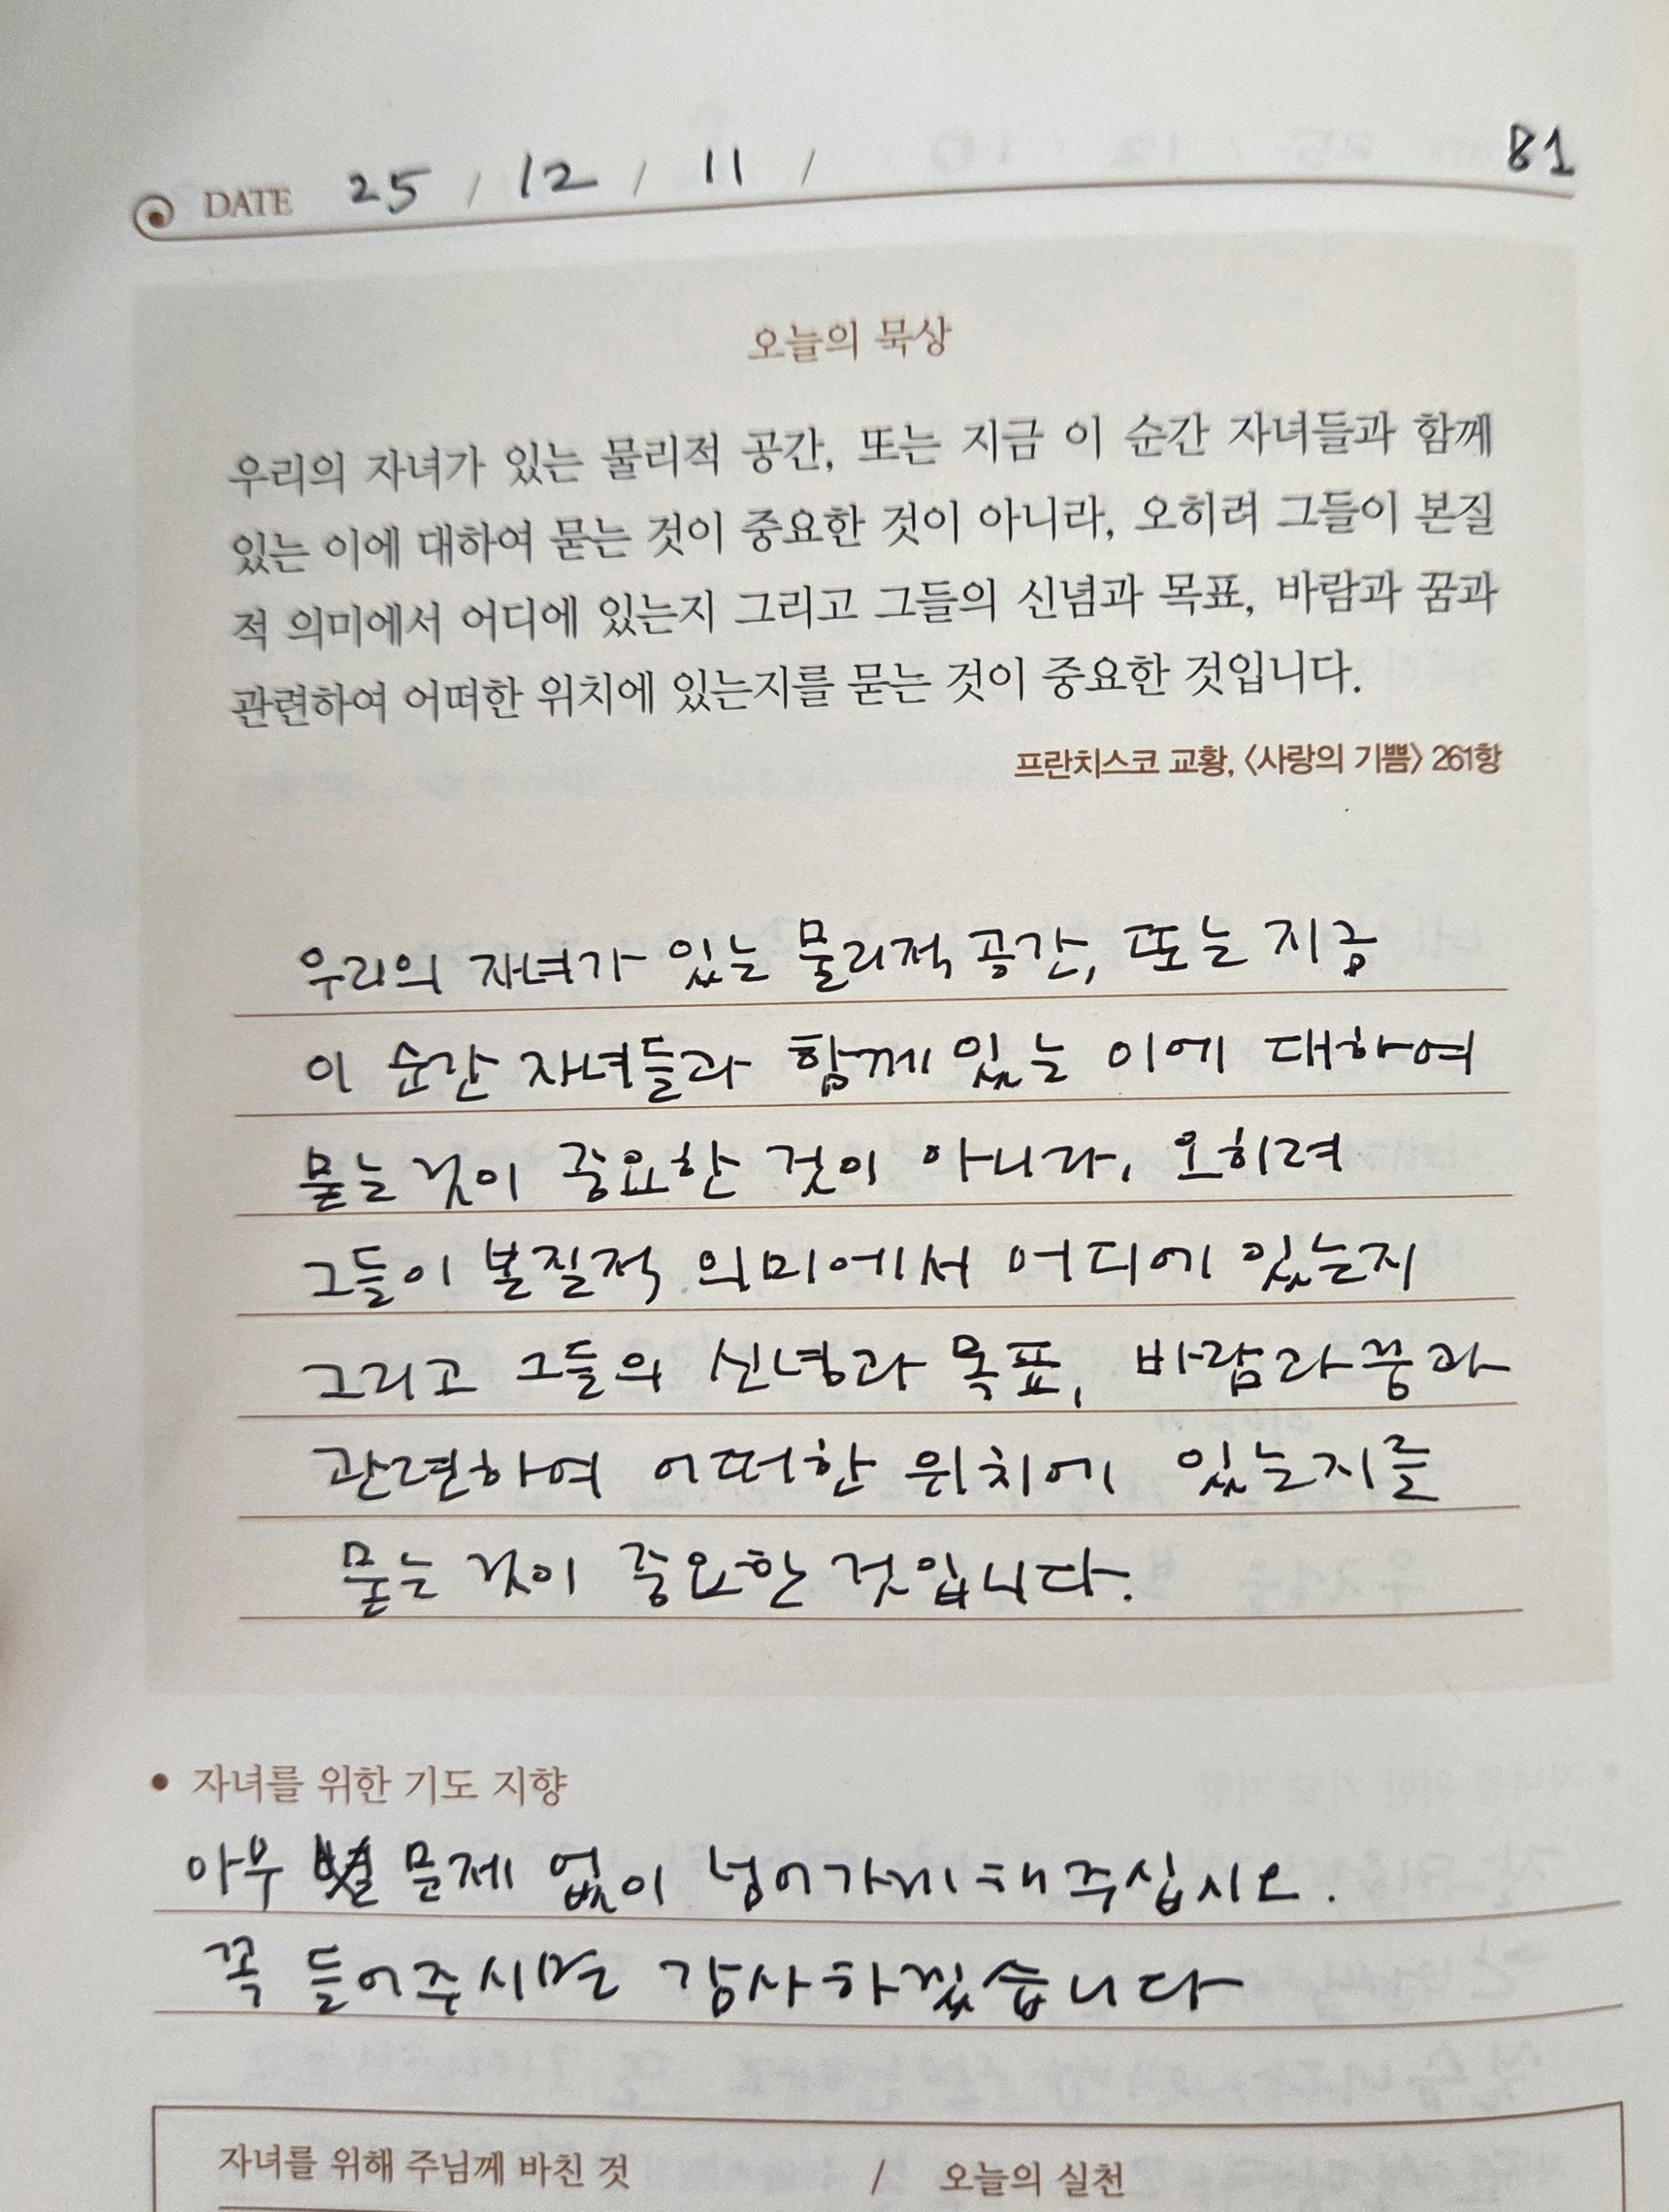 DATE 25 / 12 / 11 / 81
오늘의 묵상
우리의 자녀가 있는 물리적 공간, 또는 지금 이 순간 자녀들과 함께
있는 이에 대하여 묻는 것이 중요한 것이 아니라, 오히려 그들이 본질
적 의미에서 어디에 있는지 그리고 그들의 신념과 목표, 바람과 꿈과
관련하여 어떠한 위치에 있는지를 묻는 것이 중요한 것입니다.
프란치스코 교황, 〈사랑의 기쁨〉 261항
우리의 자녀가 있는 물리적 공간, 또는 지금
이 순간 자녀들과 함께 있는 이에 대하여
묻는 것이 중요한 것이 아니라, 오히려
그들이 본질적 의미에서 어디에 있는지
그리고 그들의 신념과 목표, 바람과 꿈과
관련하여 어떠한 위치에 있는지를
묻는 것이 중요한 것입니다.
• 자녀를 위한 기도 지향
아무 문제 없이 넘어가게 해주십시오.
꼭 들어주시면 감사하겠습니다
자녀를 위해 주님께 바친 것 / 오늘의 실천